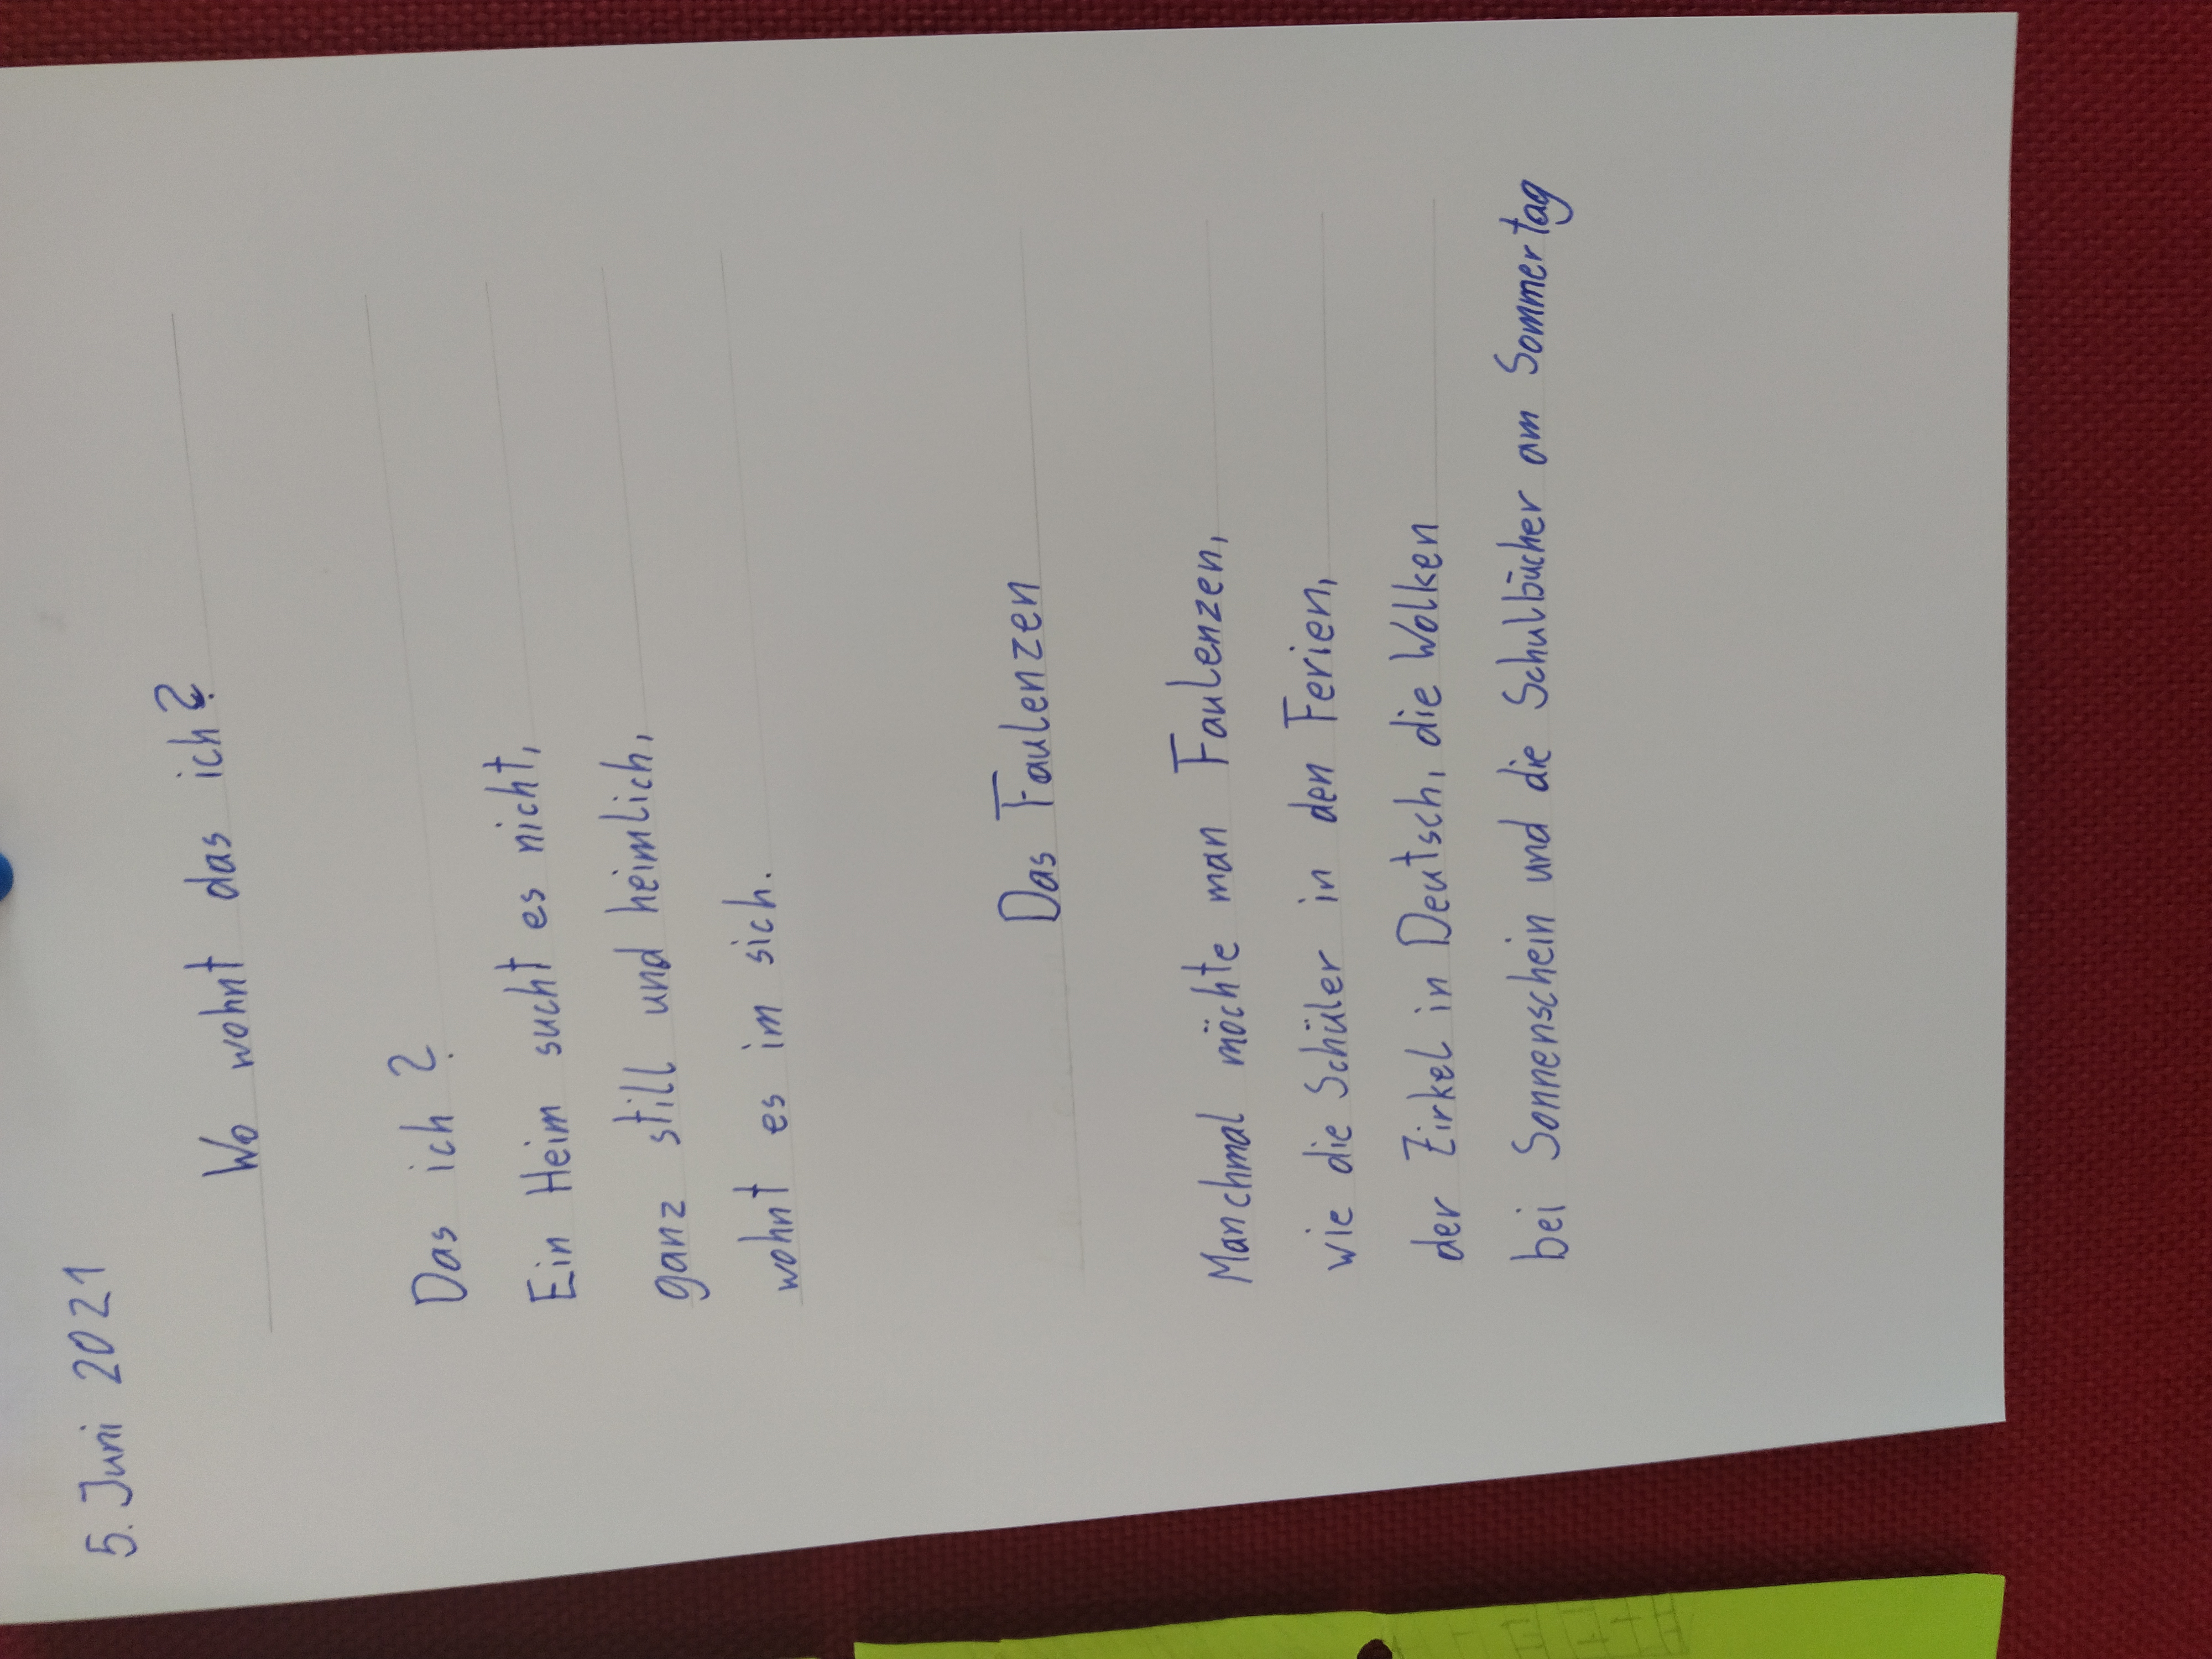 5. Juni 2021
Wo wohnt das ich?
Das ich?
Ein Heim sucht es nicht,
ganz still und heimlich,
wohnt es im sich.
Das Faulenzen
Manchmal möchte man Faulenzen,
wie die Schüler in den Ferien,
der Zirkel in Deutsch, die Wolken
bei Sonnenschein und die Schulbücher am Sommertag